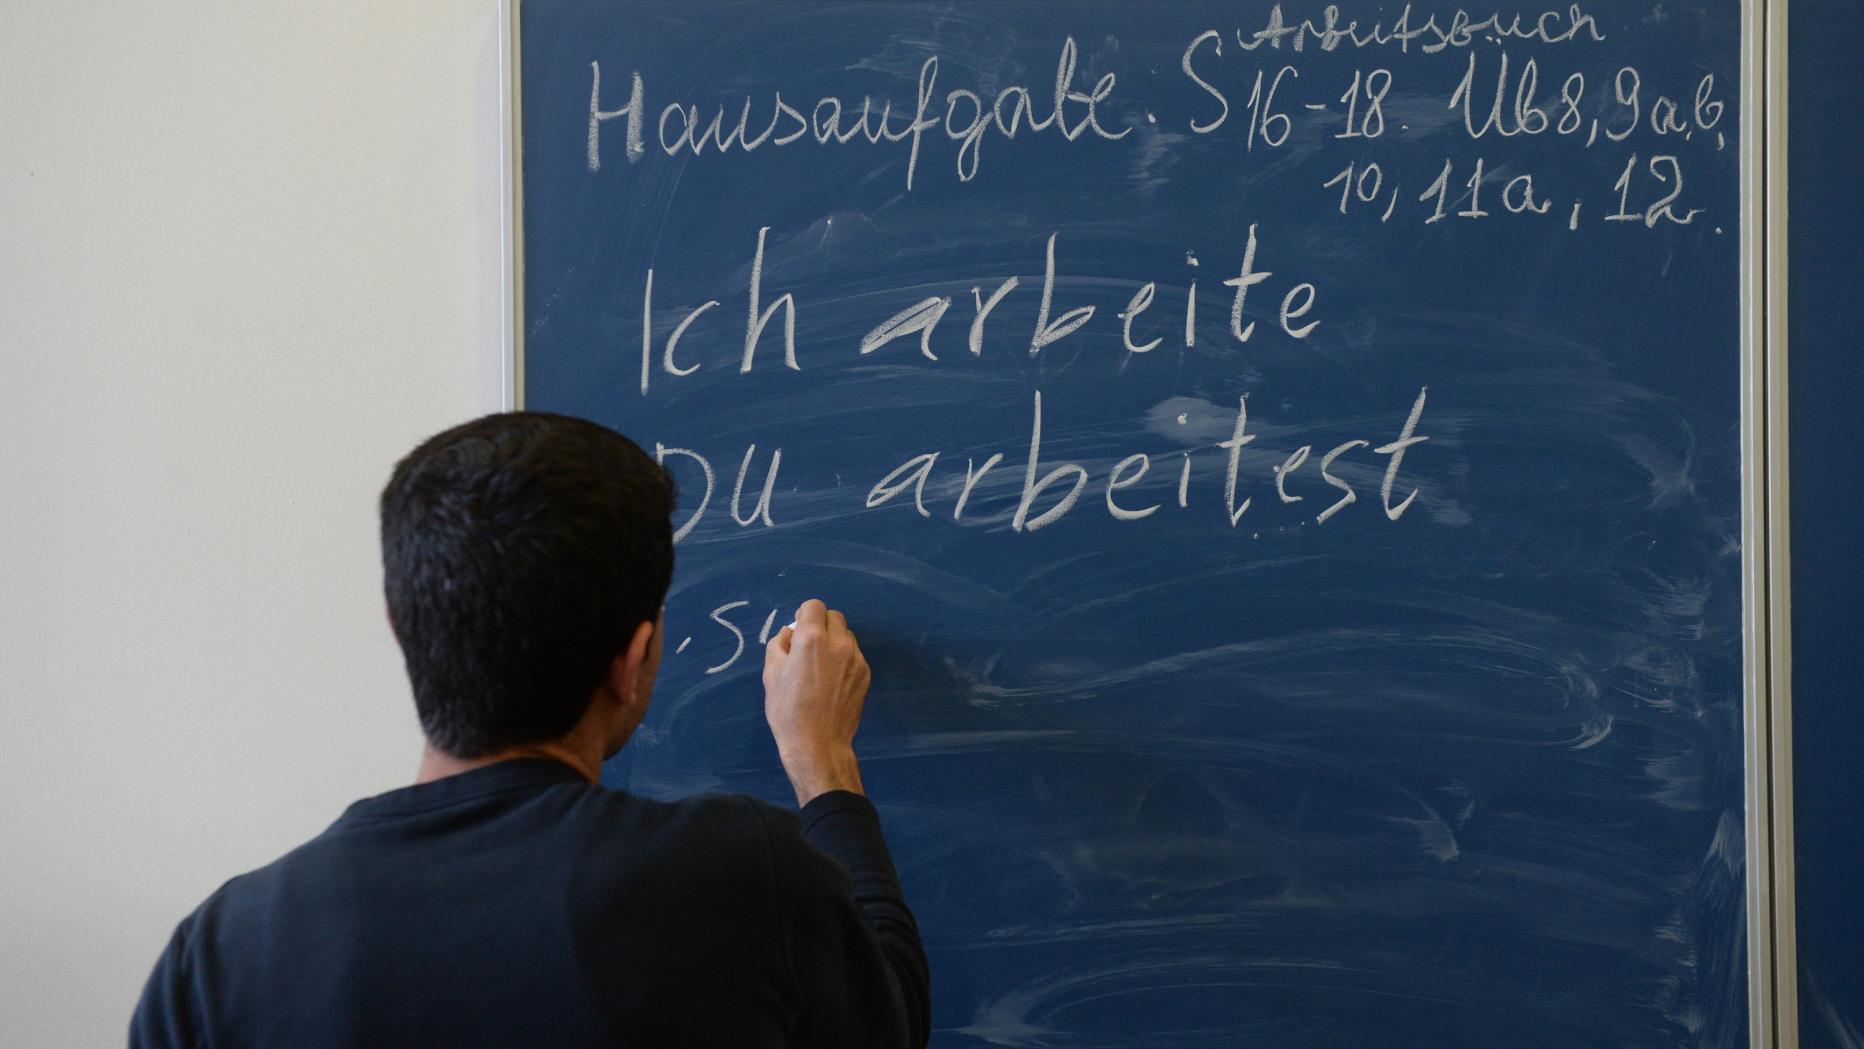 Arbeitsbuch
Hausaufgabe. S 16-18. Üb 8, 9a,b,
10, 11a, 12.
Ich arbeite
Du arbeitest